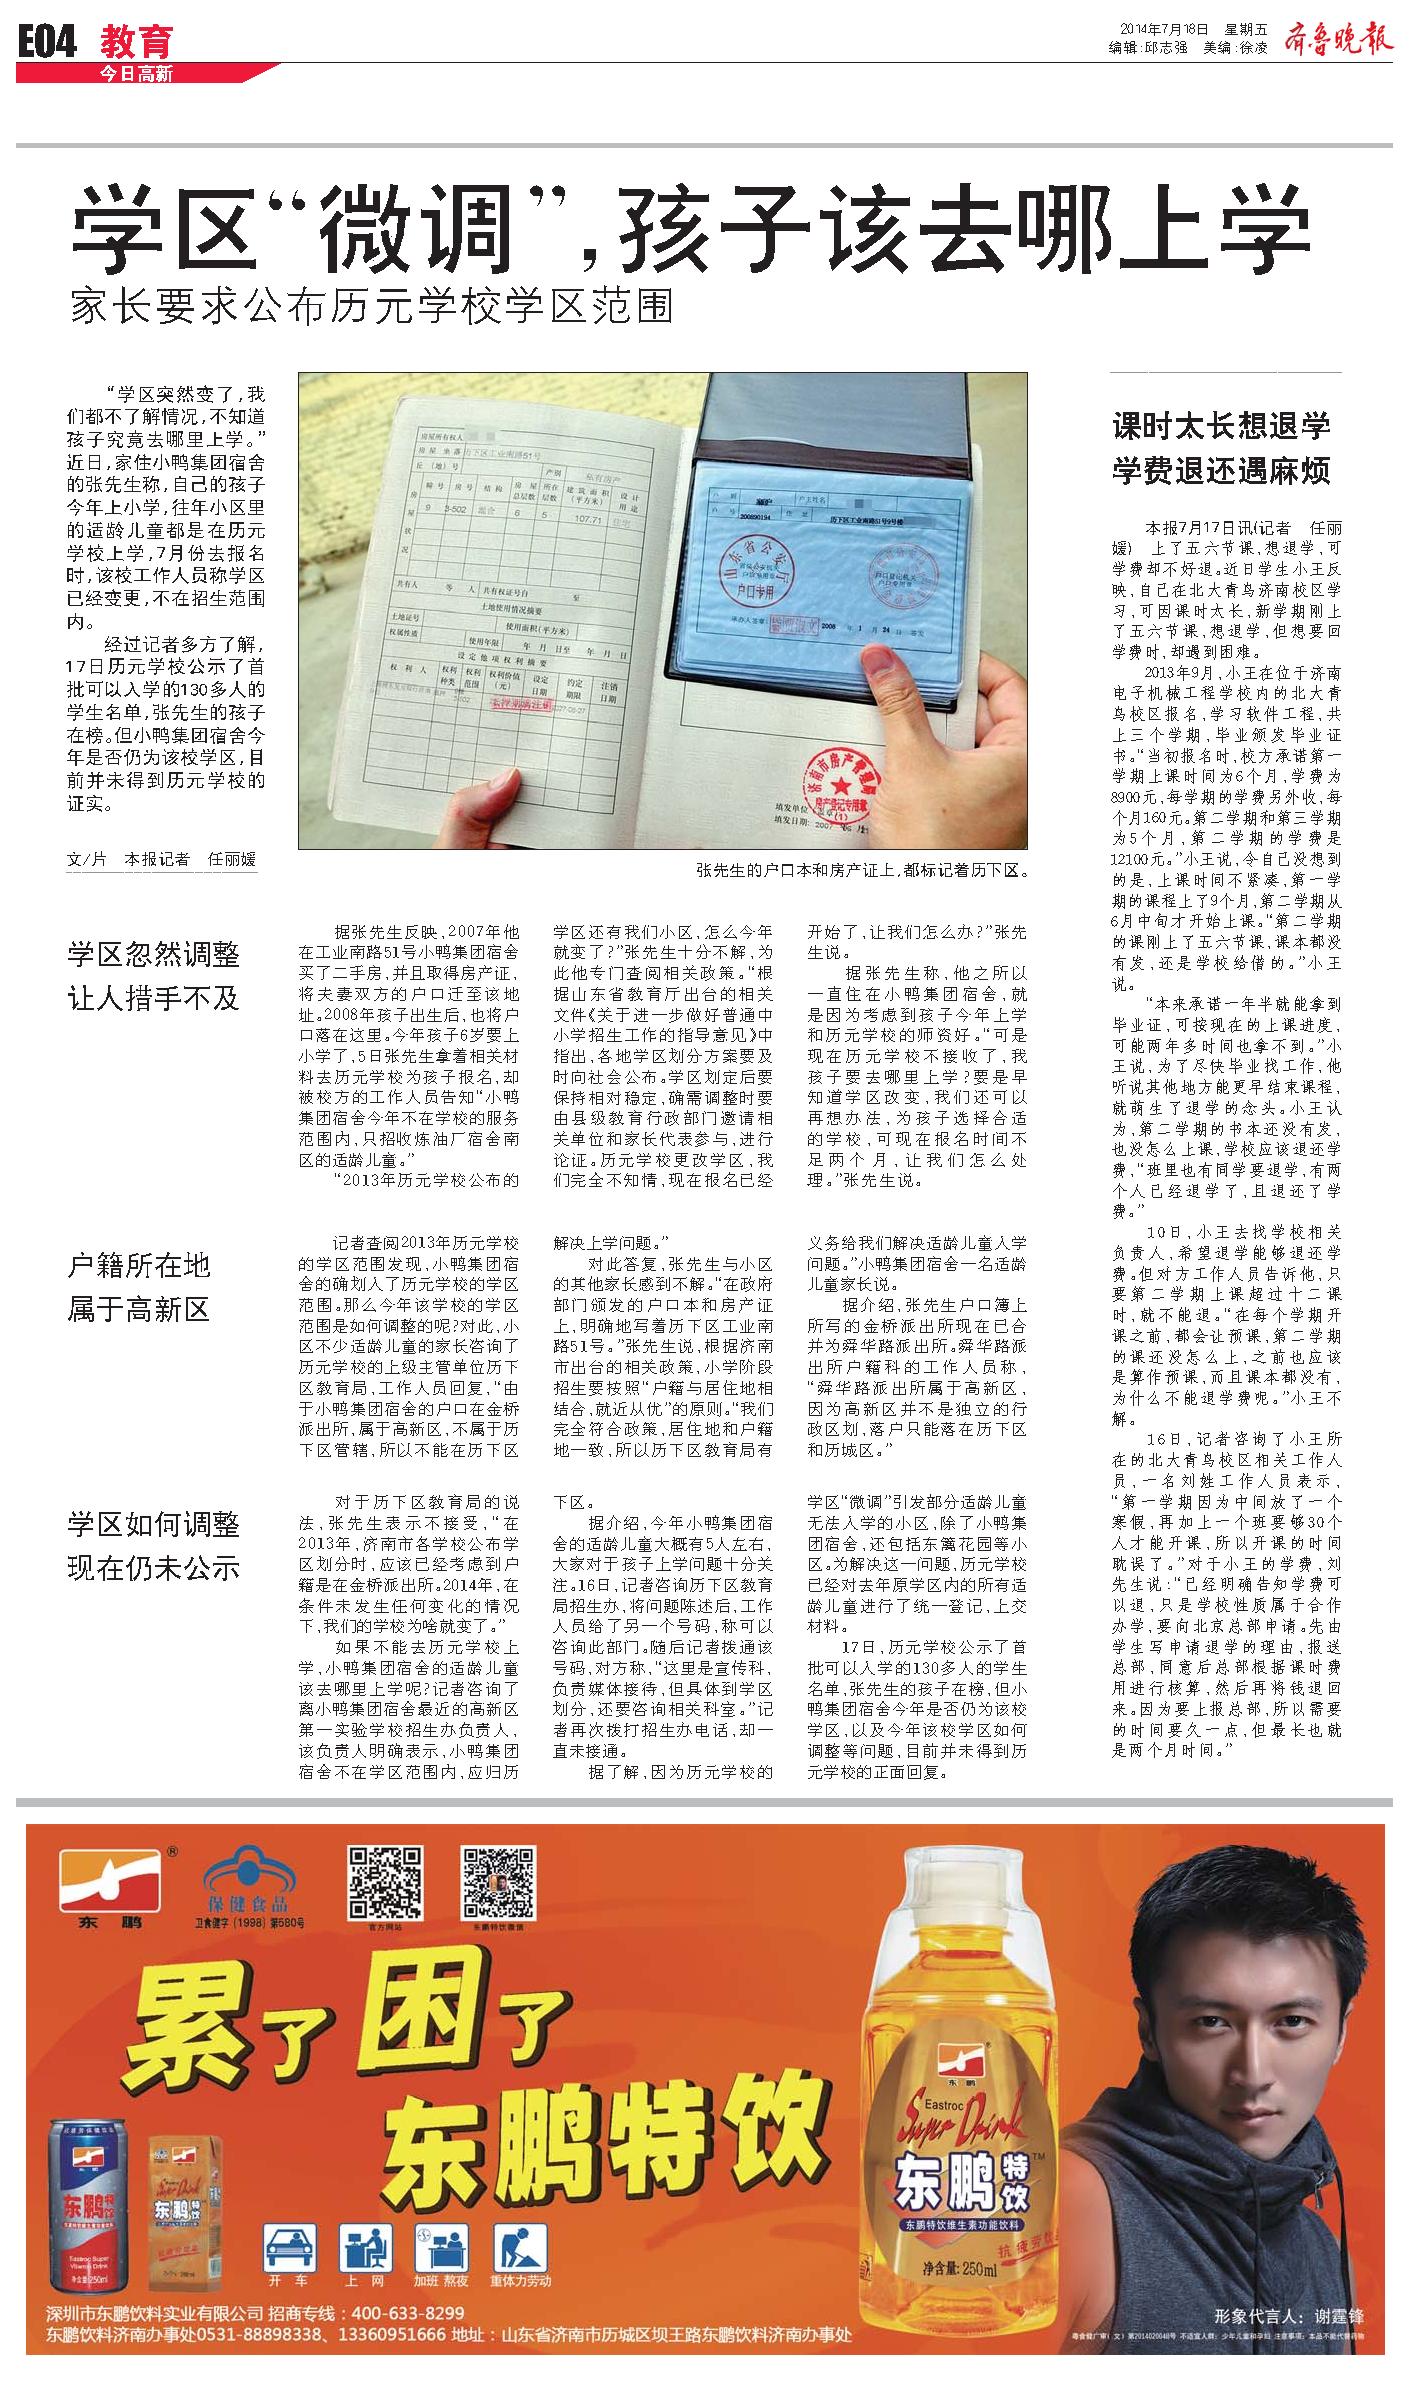 E04 教育
今日高新
2014年7月18日 星期五
编辑:邱志强 美编:徐凌
齐鲁晚报
学区“微调”,孩子该去哪上学
家长要求公布历元学校学区范围
“学区突然变了,我
们都不了解情况,不知道
孩子究竟去哪里上学。”
近日,家住小鸭集团宿舍
的张先生称,自己的孩子
今年上小学,往年小区里
的适龄儿童都是在历元
学校上学,7月份去报名
时,该校工作人员称学区
已经变更,不在招生范围
内。
经过记者多方了解,
17日历元学校公示了首
批可以入学的130多人的
学生名单,张先生的孩子
在榜。但小鸭集团宿舍今
年是否仍为该校学区,目
前并未得到历元学校的
证实。
文/片 本报记者 任丽媛
房屋所有权人
房屋坐落 历下区工业南路51号
丘(地)号 产别 私有房产
房屋状况
幢号 房号 结构 房屋总层数 所在层数 建筑面积(平方米) 设计用途
9 3-502 混合 6 5 107.71 住宅
共有人 等 人 共有权证号自 至
土地使用情况摘要
土地证号 使用面积(平方米)
权属性质 使用年限 年 月 日至 年 月 日
设定他项权利摘要
权利人 权利种类 权利范围 权利价值(元) 设定日期 约定期限 注销日期
户别 户主姓名
户号 200890194 住址 历下区工业南路51号9号楼
山东省公安厅
户口专用
承办人签章: 2008 年 1 月 24 日 签发
济南市房产管理局
房产登记专用章
(1)
填发单位
填发日期: 2007
张先生的户口本和房产证上,都标记着历下区。
学区忽然调整
让人措手不及
据张先生反映,2007年他
在工业南路51号小鸭集团宿舍
买了二手房,并且取得房产证,
将夫妻双方的户口迁至该地
址。2008年孩子出生后,也将户
口落在这里。今年孩子6岁要上
小学了,5日张先生拿着相关材
料去历元学校为孩子报名,却
被校方的工作人员告知“小鸭
集团宿舍今年不在学校的服务
范围内,只招收炼油厂宿舍南
区的适龄儿童。”
“2013年历元学校公布的
学区还有我们小区,怎么今年
就变了?”张先生十分不解,为
此他专门查阅相关政策。“根
据山东省教育厅出台的相关
文件《关于进一步做好普通中
小学招生工作的指导意见》中
指出,各地学区划分方案要及
时向社会公布。学区划定后要
保持相对稳定,确需调整时要
由县级教育行政部门邀请相
关单位和家长代表参与,进行
论证。历元学校更改学区,我
们完全不知情,现在报名已经
开始了,让我们怎么办?”张先
生说。
据张先生称,他之所以
一直住在小鸭集团宿舍,就
是因为考虑到孩子今年上学
和历元学校的师资好。“可是
现在历元学校不接收了,我
孩子要去哪里上学?要是早
知道学区改变,我们还可以
再想办法,为孩子选择合适
的学校,可现在报名时间不
足两个月,让我们怎么处
理。”张先生说。
户籍所在地
属于高新区
记者查阅2013年历元学校
的学区范围发现,小鸭集团宿
舍的确划入了历元学校的学区
范围。那么今年该学校的学区
范围是如何调整的呢?对此,小
区不少适龄儿童的家长咨询了
历元学校的上级主管单位历下
区教育局,工作人员回复,“由
于小鸭集团宿舍的户口在金桥
派出所,属于高新区,不属于历
下区管辖,所以不能在历下区
解决上学问题。”
对此答复,张先生与小区
的其他家长感到不解。“在政府
部门颁发的户口本和房产证
上,明确地写着历下区工业南
路51号。”张先生说,根据济南
市出台的相关政策,小学阶段
招生要按照“户籍与居住地相
结合,就近从优”的原则。“我们
完全符合政策,居住地和户籍
地一致,所以历下区教育局有
义务给我们解决适龄儿童入学
问题。”小鸭集团宿舍一名适龄
儿童家长说。
据介绍,张先生户口簿上
所写的金桥派出所现在已合
并为舜华路派出所。舜华路派
出所户籍科的工作人员称,
“舜华路派出所属于高新区,
因为高新区并不是独立的行
政区划,落户只能落在历下区
和历城区。”
学区如何调整
现在仍未公示
对于历下区教育局的说
法,张先生表示不接受,“在
2013年,济南市各学校公布学
区划分时,应该已经考虑到户
籍是在金桥派出所。2014年,在
条件未发生任何变化的情况
下,我们的学校为啥就变了。”
如果不能去历元学校上
学,小鸭集团宿舍的适龄儿童
该去哪里上学呢?记者咨询了
离小鸭集团宿舍最近的高新区
第一实验学校招生办负责人,
该负责人明确表示,小鸭集团
宿舍不在学区范围内,应归历
下区。
据介绍,今年小鸭集团宿
舍的适龄儿童大概有5人左右,
大家对于孩子上学问题十分关
注。16日,记者咨询历下区教育
局招生办,将问题陈述后,工作
人员给了另一个号码,称可以
咨询此部门。随后记者拨通该
号码,对方称,“这里是宣传科,
负责媒体接待,但具体到学区
划分,还要咨询相关科室。”记
者再次拨打招生办电话,却一
直未接通。
据了解,因为历元学校的
学区“微调”引发部分适龄儿童
无法入学的小区,除了小鸭集
团宿舍,还包括东篱花园等小
区。为解决这一问题,历元学校
已经对去年原学区内的所有适
龄儿童进行了统一登记,上交
材料。
17日,历元学校公示了首
批可以入学的130多人的学生
名单,张先生的孩子在榜,但小
鸭集团宿舍今年是否仍为该校
学区,以及今年该校学区如何
调整等问题,目前并未得到历
元学校的正面回复。
课时太长想退学
学费退还遇麻烦
本报7月17日讯(记者 任丽
媛) 上了五六节课,想退学,可
学费却不好退。近日学生小王反
映,自己在北大青鸟济南校区学
习,可因课时太长,新学期刚上
了五六节课,想退学,但想要回
学费时,却遇到困难。
2013年9月,小王在位于济南
电子机械工程学校内的北大青
鸟校区报名,学习软件工程,共
上三个学期,毕业颁发毕业证
书。“当初报名时,校方承诺第一
学期上课时间为6个月,学费为
8900元,每学期的学费另外收,每
个月160元。第二学期和第三学期
为5个月,第二学期的学费是
12100元。”小王说,令自己没想到
的是,上课时间不紧凑,第一学
期的课程上了9个月,第二学期从
6月中旬才开始上课。“第二学期
的课刚上了五六节课,课本都没
有发,还是学校给借的。”小王
说。
“本来承诺一年半就能拿到
毕业证,可按现在的上课进度,
可能两年多时间也拿不到。”小
王说,为了尽快毕业找工作,他
听说其他地方能更早结束课程,
就萌生了退学的念头。小王认
为,第二学期的书本还没有发,
也没怎么上课,学校应该退还学
费,“班里也有同学要退学,有两
个人已经退学了,且退还了学
费。”
10日,小王去找学校相关
负责人,希望退学能够退还学
费。但对方工作人员告诉他,只
要第二学期上课超过十二课
时,就不能退。“在每个学期开
课之前,都会让预课,第二学期
的课还没怎么上,之前也应该
是算作预课,而且课本都没有,
为什么不能退学费呢。”小王不
解。
16日,记者咨询了小王所
在的北大青鸟校区相关工作人
员,一名刘姓工作人员表示,
“第一学期因为中间放了一个
寒假,再加上一个班要够30个
人才能开课,所以开课的时间
耽误了。”对于小王的学费,刘
先生说:“已经明确告知学费可
以退,只是学校性质属于合作
办学,要向北京总部申请。先由
学生写申请退学的理由,报送
总部,同意后总部根据课时费
用进行核算,然后再将钱退回
来。因为要上报总部,所以需要
的时间要久一点,但最长也就
是两个月时间。”
东鹏 ®
保健食品
卫食健字(1998)第580号
官方网站
东鹏特饮微信
累了困了
东鹏特饮
东鹏特饮
东鹏特饮
开车 上网 加班 熬夜 重体力劳动
深圳市东鹏饮料实业有限公司 招商专线:400-633-8299
东鹏饮料济南办事处0531-88898338、13360951666 地址:山东省济南市历城区坝王路东鹏饮料济南办事处
东鹏
Eastroc
Super Drink
东鹏特饮 TM
东鹏特饮维生素功能饮料
抗疲劳
净含量:250ml
形象代言人:谢霆锋
粤食健广审(文)第2014020048号 不适宜人群:少年儿童和孕妇 注意事项:本品不能代替药物